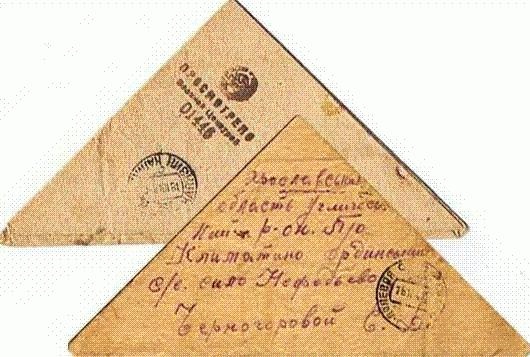 ПРОСМОТРЕНО
Военной Цензурой
01446
Ярославская
область Угличес-
кий р-он. П/о
Климатино Ординский
с/с. село Нефедьево
Черногоровой Е.